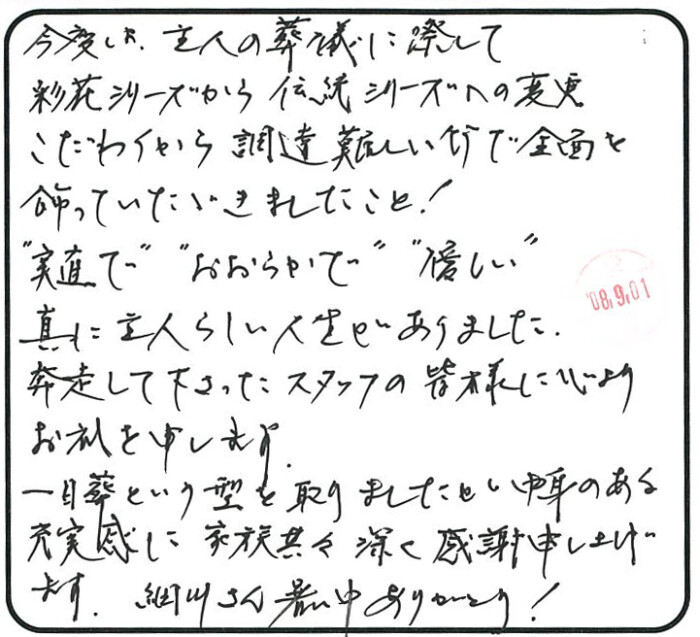 今度は、主人の葬儀に際して
彩花シリーズから伝統シリーズへの変更
こだわりから調達難しい竹で全面を
飾っていただきましたこと!
"実直で" "おおらかで" "優しい"
真に主人らしい人生でありました.
奔走して下さったスタッフの皆様に心より
お礼を申します.
一日葬という型を取りましたが中身のある
充実感に家族共々深く感謝申し上げ
ます. 細川さん暑い中ありがとう!
'08.9.01